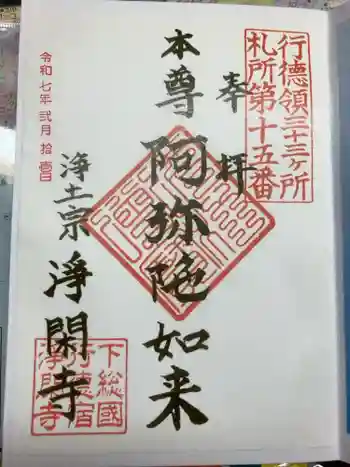 行徳領三十三ヶ所
札所第十五番
奉拝
本尊 阿弥陀如来
浄土宗 浄閑寺
令和七年弐月拾壱日
下総國
行徳宿
浄閑寺